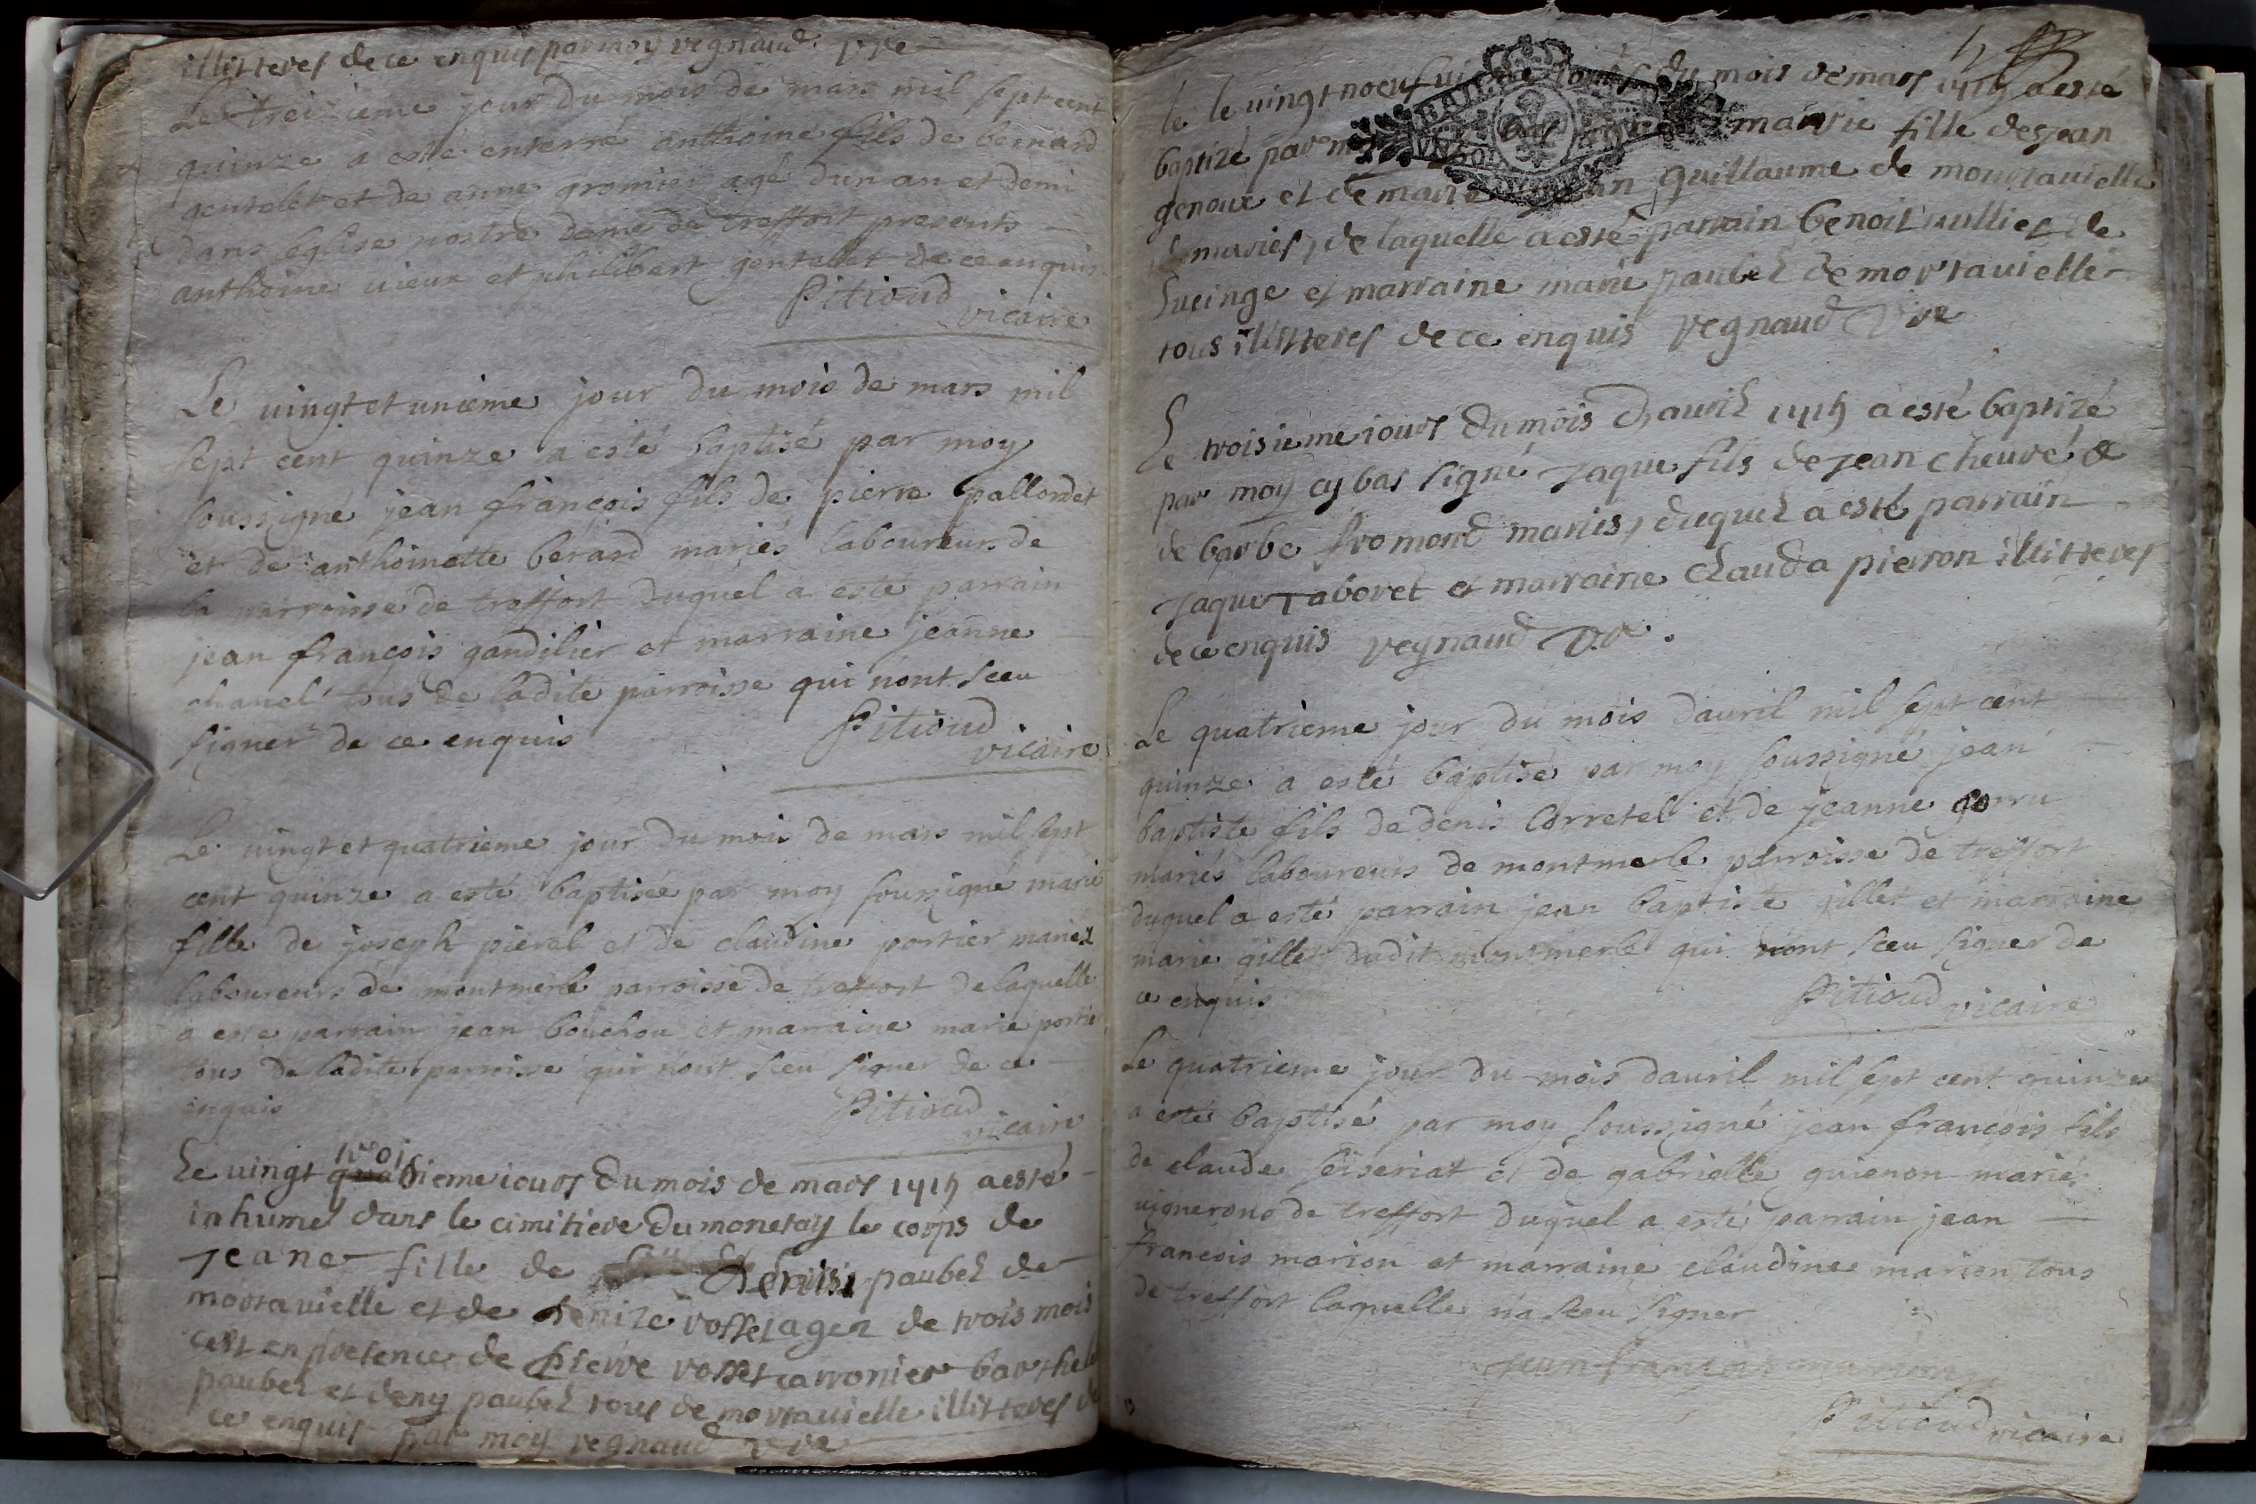 illitteres de ce enquis par moy regnaud
Le treizieme jour du mois de mars mil sept cent
quinze a esté enterré anthoine fils de bernard
gentelet et de anne gromier agé dun an et demi
dans leglise nostre dame de treffort presents
anthoine vieux et philibert gentelet de ce enquis
Pitioud
vicaire
Le vingt et unieme jour du mois de mars mil
sept cent quinze a esté baptisé par moy
soussigné jean françois fils de pierre pallordet
et de anthoinette bérard mariés laboureurs de
la parroisse de treffort duquel a esté parrain
jean françois gandilier et marraine jeanne
chanel tous de ladite parroisse qui nont sceu
signer de ce enquis
Pitioud
vicaire
Le vingt et quatrieme jour du mois de mars mil sept
cent quinze a esté baptisée par moy soussigné marie
fille de joseph pierel et de claudine portier mariés
laboureurs de montmerle parroisse de treffort de laquelle
a este parrain jean bouchou et marraine marie portie
tous de ladite parroisse qui nont sceu signer de ce
enquis
Pitioud
vicaire
Le vingt troisieme iour du mois de mars 1715 a esté
inhumé dans le cimitiere du monetay le corps de
jeane fille de Denis paubel de
mortavielle et de denize rosset agez de trois mois
cest en presence de pierre rosset carronier barthele
paubel et deny paubel tous de mortavielle illitteres de
ce enquis par moy regnaud
le le vingt noeufvieme iour du mois de mars 1715 a esté
baptizé par marie fille de jean
genoux et de marie guillaume de mourtavielle
mariés, de laquelle a esté parrain benoit vullies de
sucinge et marraine marie paubel de mortavielle
tous illitteres de ce enquis regnaud
Le troisieme iour du mois d'avril 1715 a esté baptizé
par moy cy bas signé jaque fils de jean cheuré &
de barbe fromond mariés, duquel a esté parrain
jaque taboret et marraine clauda pierron illitteres
de ce enquis regnaud
Le quatrieme jour du mois dauril mil sept cent
quinze a esté baptisé par moy soussigné jean
baptiste fils de denis Corretel et de jeanne gorru
mariés laboureurs de montmerle parroisse de treffort
duquel a esté parrain jean baptiste gillet et marraine
marie gillet dudit montmerle qui nont sceu signer de
ce enquis
Pitioud vicaire
Le quatrieme jour du mois dauril mil sept cent quinze
a esté baptisé par moy soussigné jean françois fils
de claude seiseriat et de gabrielle guienon mariés
vignerons de treffort duquel a esté parrain jean
françois marion et marraine claudine marion tous
de treffort laquelle na sceu signer
jean françois marion
Pitioud vicaire